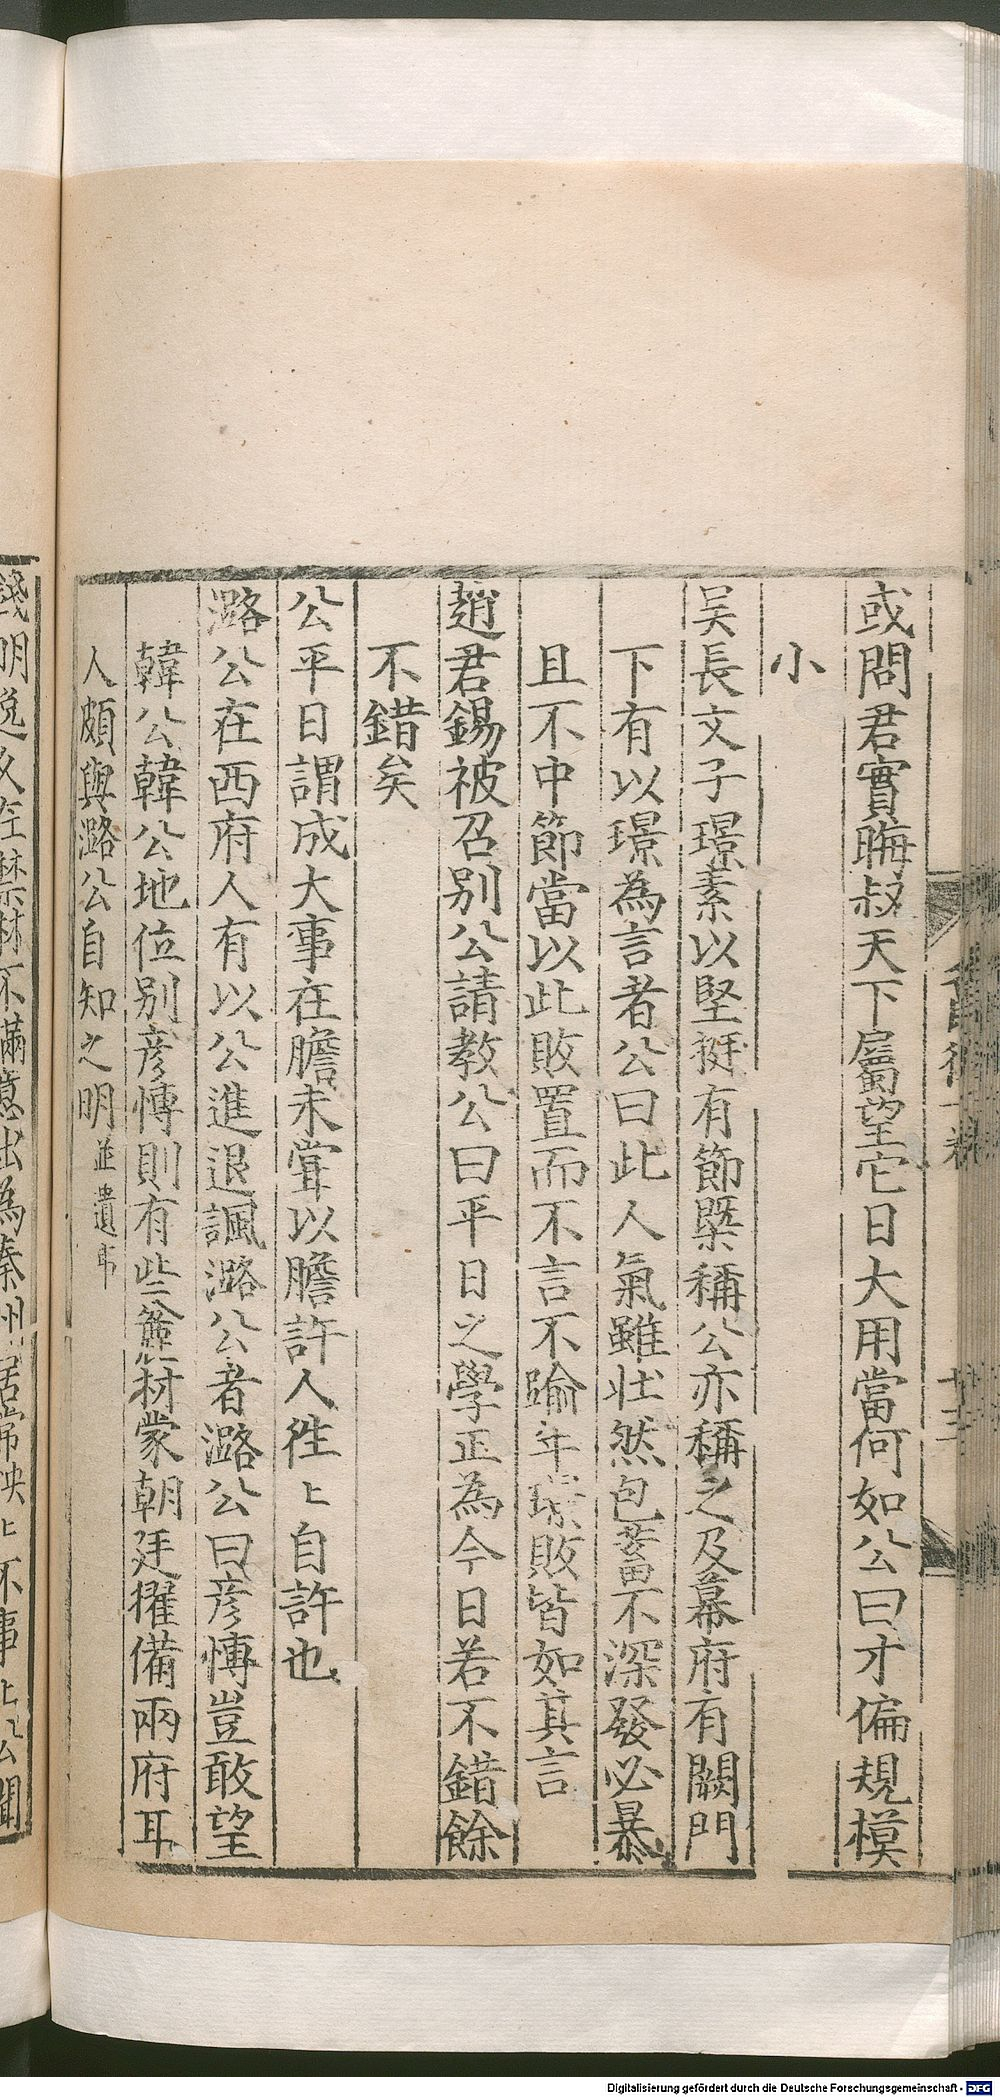 或問君實晦叔天下屬望它日大用當何如公曰才偏規模
小
吴長文子璟素以堅挺有節槩稱公亦稱之及幕府有闕門
下有以璟為言者公曰此人氣雖壮然包蓄不深發必暴
且不中節當以此敗置而不言不踰年璟敗皆如其言
趙君錫被召别公請教公曰平日之學正為今日若不錯餘
不錯矣
公平日謂成大事在膽未甞以膽許人徃〻自許也
潞公在西府人有以公進退諷潞公者潞公曰彦愽豈敢望
韓公韓公地位别彦愽則有些麄材蒙朝廷擢備兩府耳
人頗與潞公自知之明並遺事
錢明逸久在禁林不滿意出為秦州居常怏〻不事〻公聞
Digitalisierung gefördert durch die Deutsche Forschungsgemeinschaft - DFG